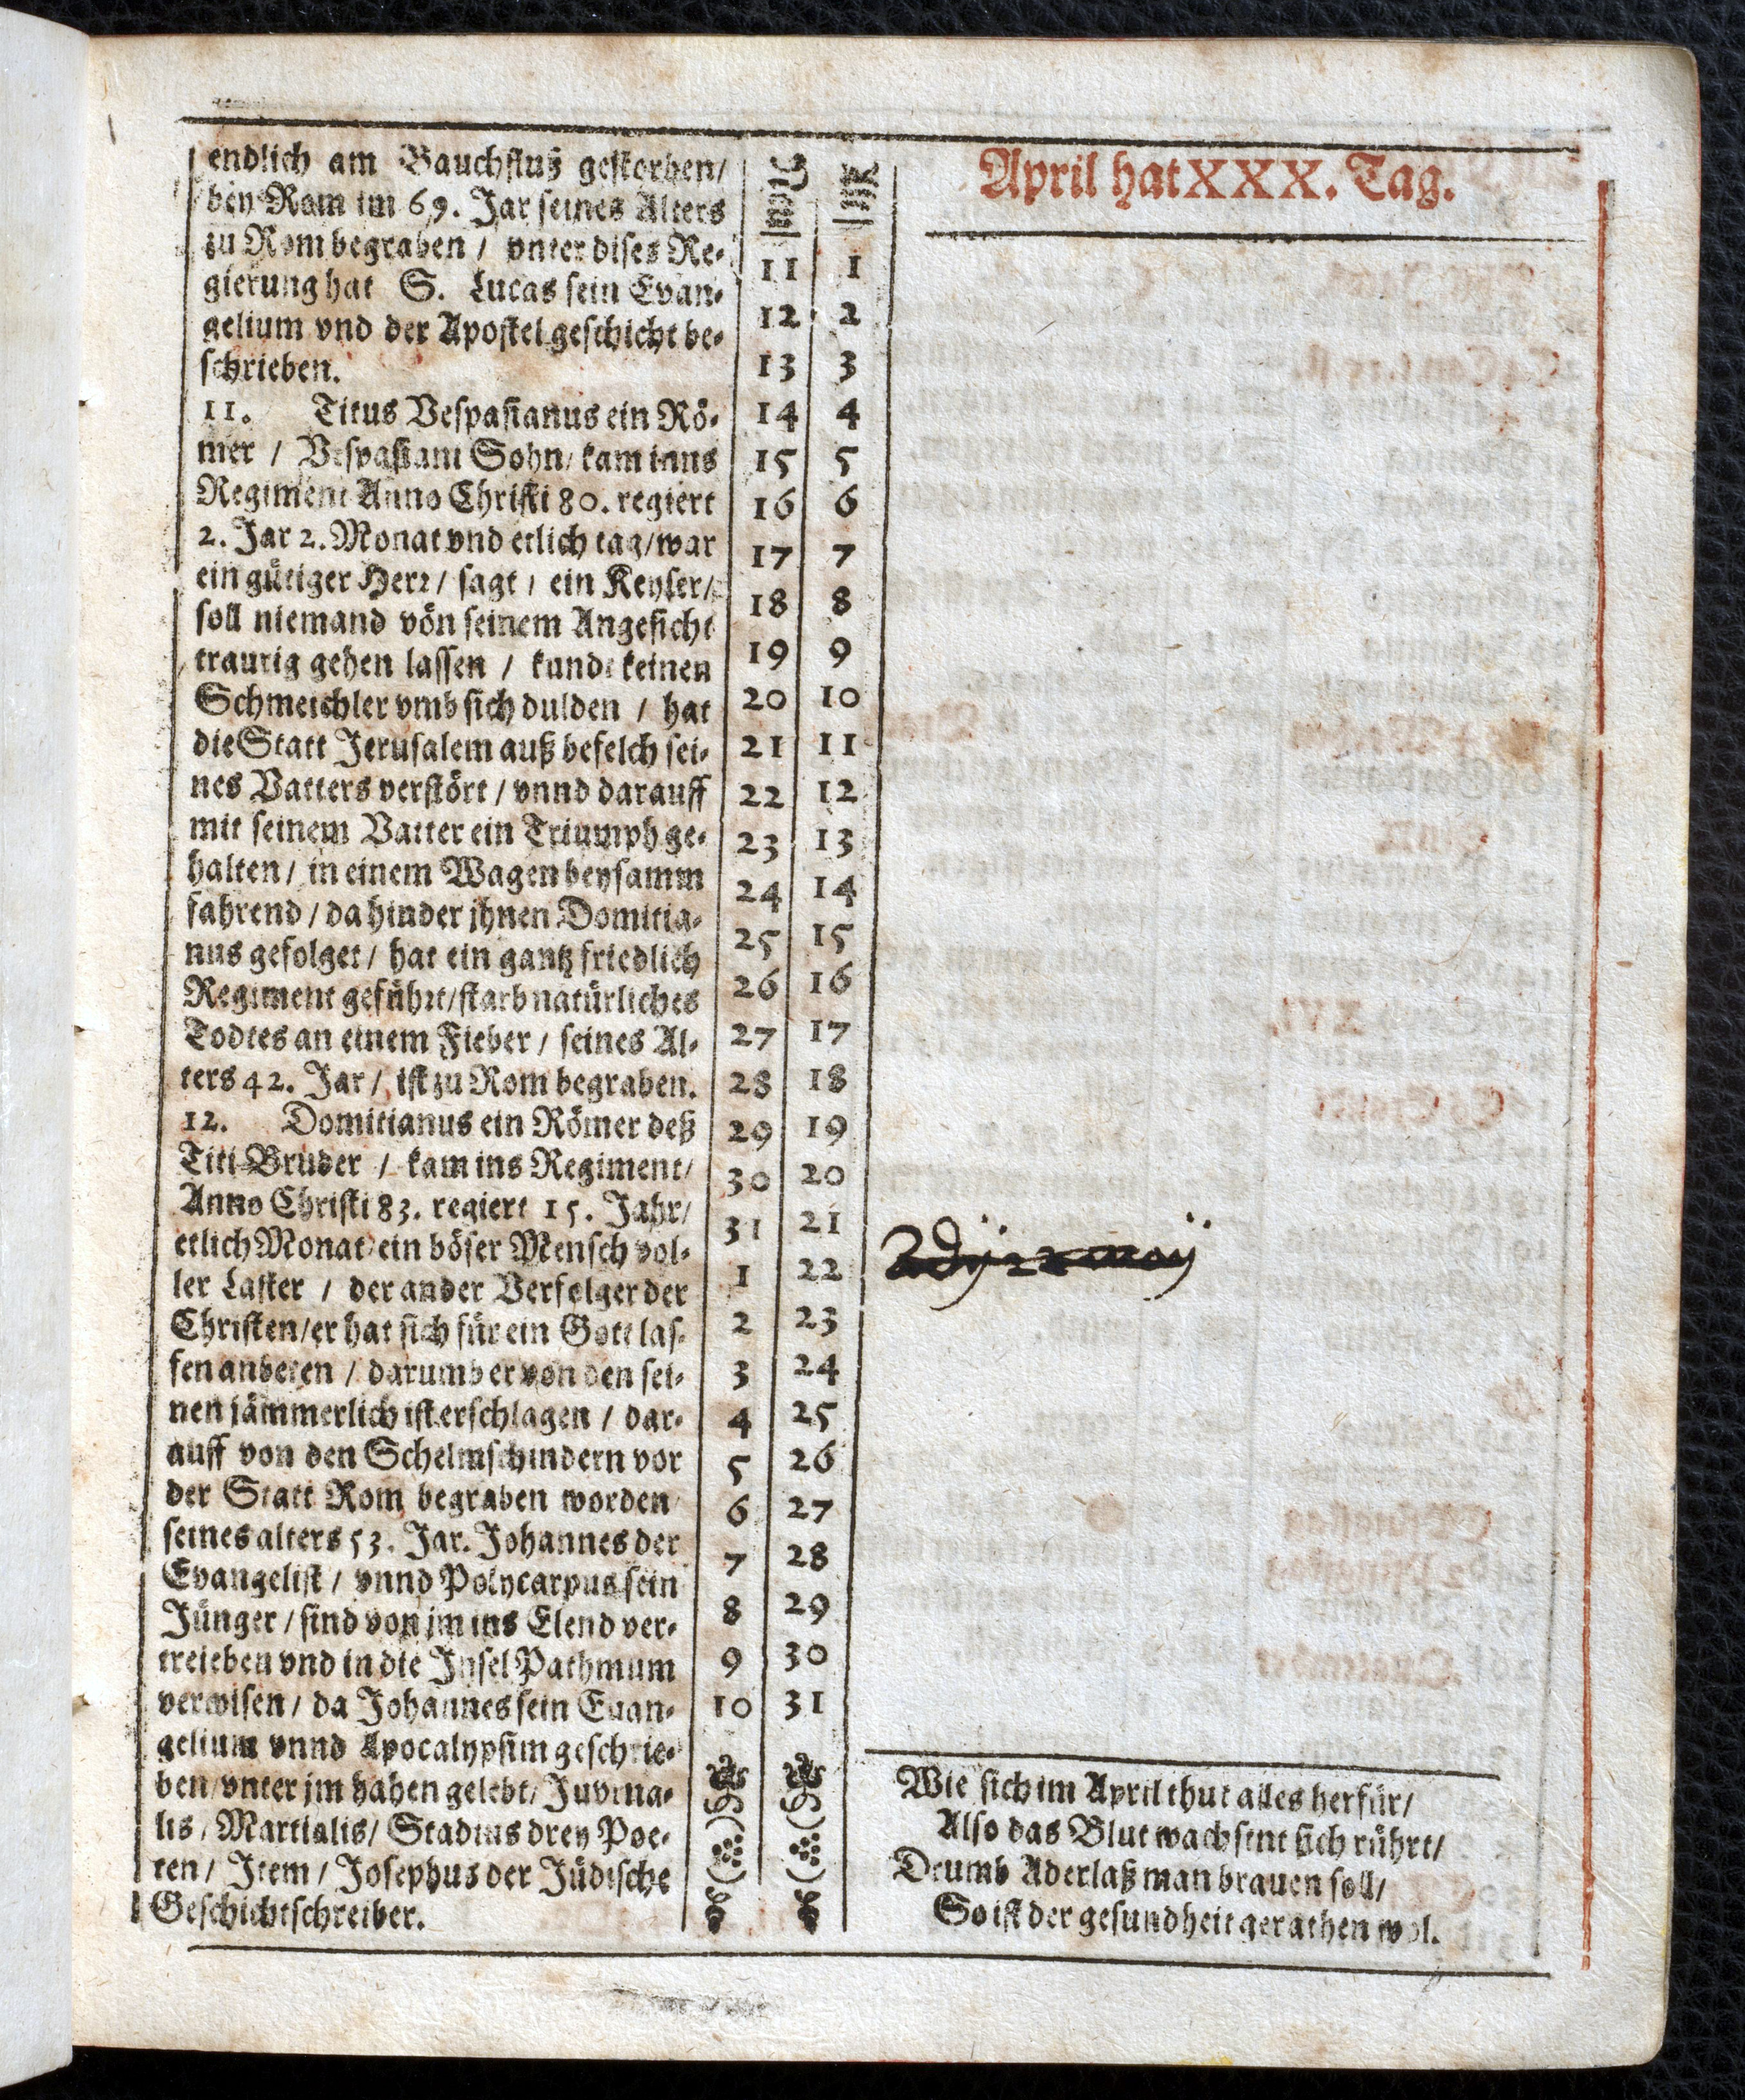 endlich am Bauchfluß gestorben/
bey Rom im 69. Jar seines Alters
zu Rom begraben / vnter diser Re-
gierung hat S. Lucas sein Evan-
gelium vnd der Apostelgeschicht be-
schrieben.
11. Titus Vespasianus ein Rö-
mer / Vespasiani Sohn / kam inns
Regiment Anno Christi 80. regiert
2. Jar 2. Monat vnd etlich tag / war
ein gütiger Herr / sagt / ein Keyser /
soll niemand von seinem Angesicht
traurig gehen lassen / kundt keinen
Schmeichler vmb sich dulden / hat
die Statt Jerusalem auß befelch sei-
nes Vatters verstört / vnnd darauff
mit seinem Vatter ein Triumph ge-
halten / in einem Wagen beysamm
fahrend / da hinder jhnen Domitia-
nus gefolget / hat ein gantz friedlich
Regiment geführt / starb natürliches
Todtes an einem Fieber / seines Al-
ters 42. Jar / ist zu Rom begraben.
12. Domitianus ein Römer deß
Titi Bruder / kam ins Regiment /
Anno Christi 83. regiert 15. Jahr /
etlich Monat / ein böser Mensch vol-
ler Laster / der ander Verfolger der
Christen / er hat sich für ein Gott las-
sen anbeten / darumb er von den sei-
nen jämmerlich ist erschlagen / dar-
auff von den Schelmschindern vor
der Statt Rom begraben worden
seines alters 53. Jar. Johannes der
Evangelist / vnnd Polycarpus sein
Jünger / sind von jm ins Elend ver-
treieben vnd in die Insel Pathmum
verwisen / da Johannes sein Euan-
gelium vnnd Apocalypsim geschrie-
ben / vnter jm haben gelebt / Juvena-
lis / Martialis / Stadius drey Poe-
ten / Item / Josephus der Jüdische
Geschichtschreiber.
11 1
12 2
13 3
14 4
15 5
16 6
17 7
18 8
19 9
20 10
21 11
22 12
23 13
24 14
25 15
26 16
27 17
28 18
29 19
30 20
31 21
1 22
2 23
3 24
4 25
5 26
6 27
7 28
8 29
9 30
10 31
April hat XXX. Tag.
Adÿ 22 maÿ
Wie sich im April thut alles herfür /
Also das Blut wachsent sich rührt /
Drumb Aderlaß man brauen soll /
So ist der gesundheit gerathen wol.